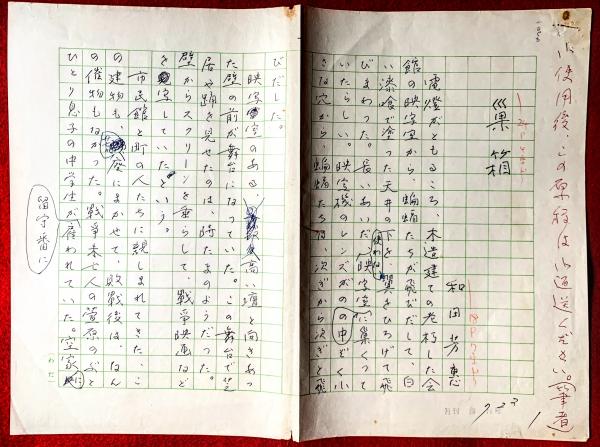 御使用後、この原稿は御返送ください。筆者
巣箱
和田芳恵
電燈がともるころ、木造建ての老朽した会
館の映写室から、蝙蝠たちが飛びだして、白
い漆喰で塗った天井の下を、翼をひろげて飛
びまわった。長いあいだ使わない映写室に巣くって
いたらしい。映写機のレンズがのの中ぞく小
さな穴から、蝙蝠たちは、次ぎから次ぎと飛
びだした。
映写室のある高い壇と向きあっ
た壁の前が舞台になっていた。この舞台で芝
居や踊を見せたのは、時たまのようだった。
壁からスクリーンを垂らして、戦争映画など
を写していたという。
市民館と町の人たちに親しまれてきた、こ
の建物も、座にまかせて、敗戦後は、なん
の催物もなかった。戦争未亡人の菅原のぶと
ひとり息子の中学生が雇われていた。空家に
留守番に
7.23
1